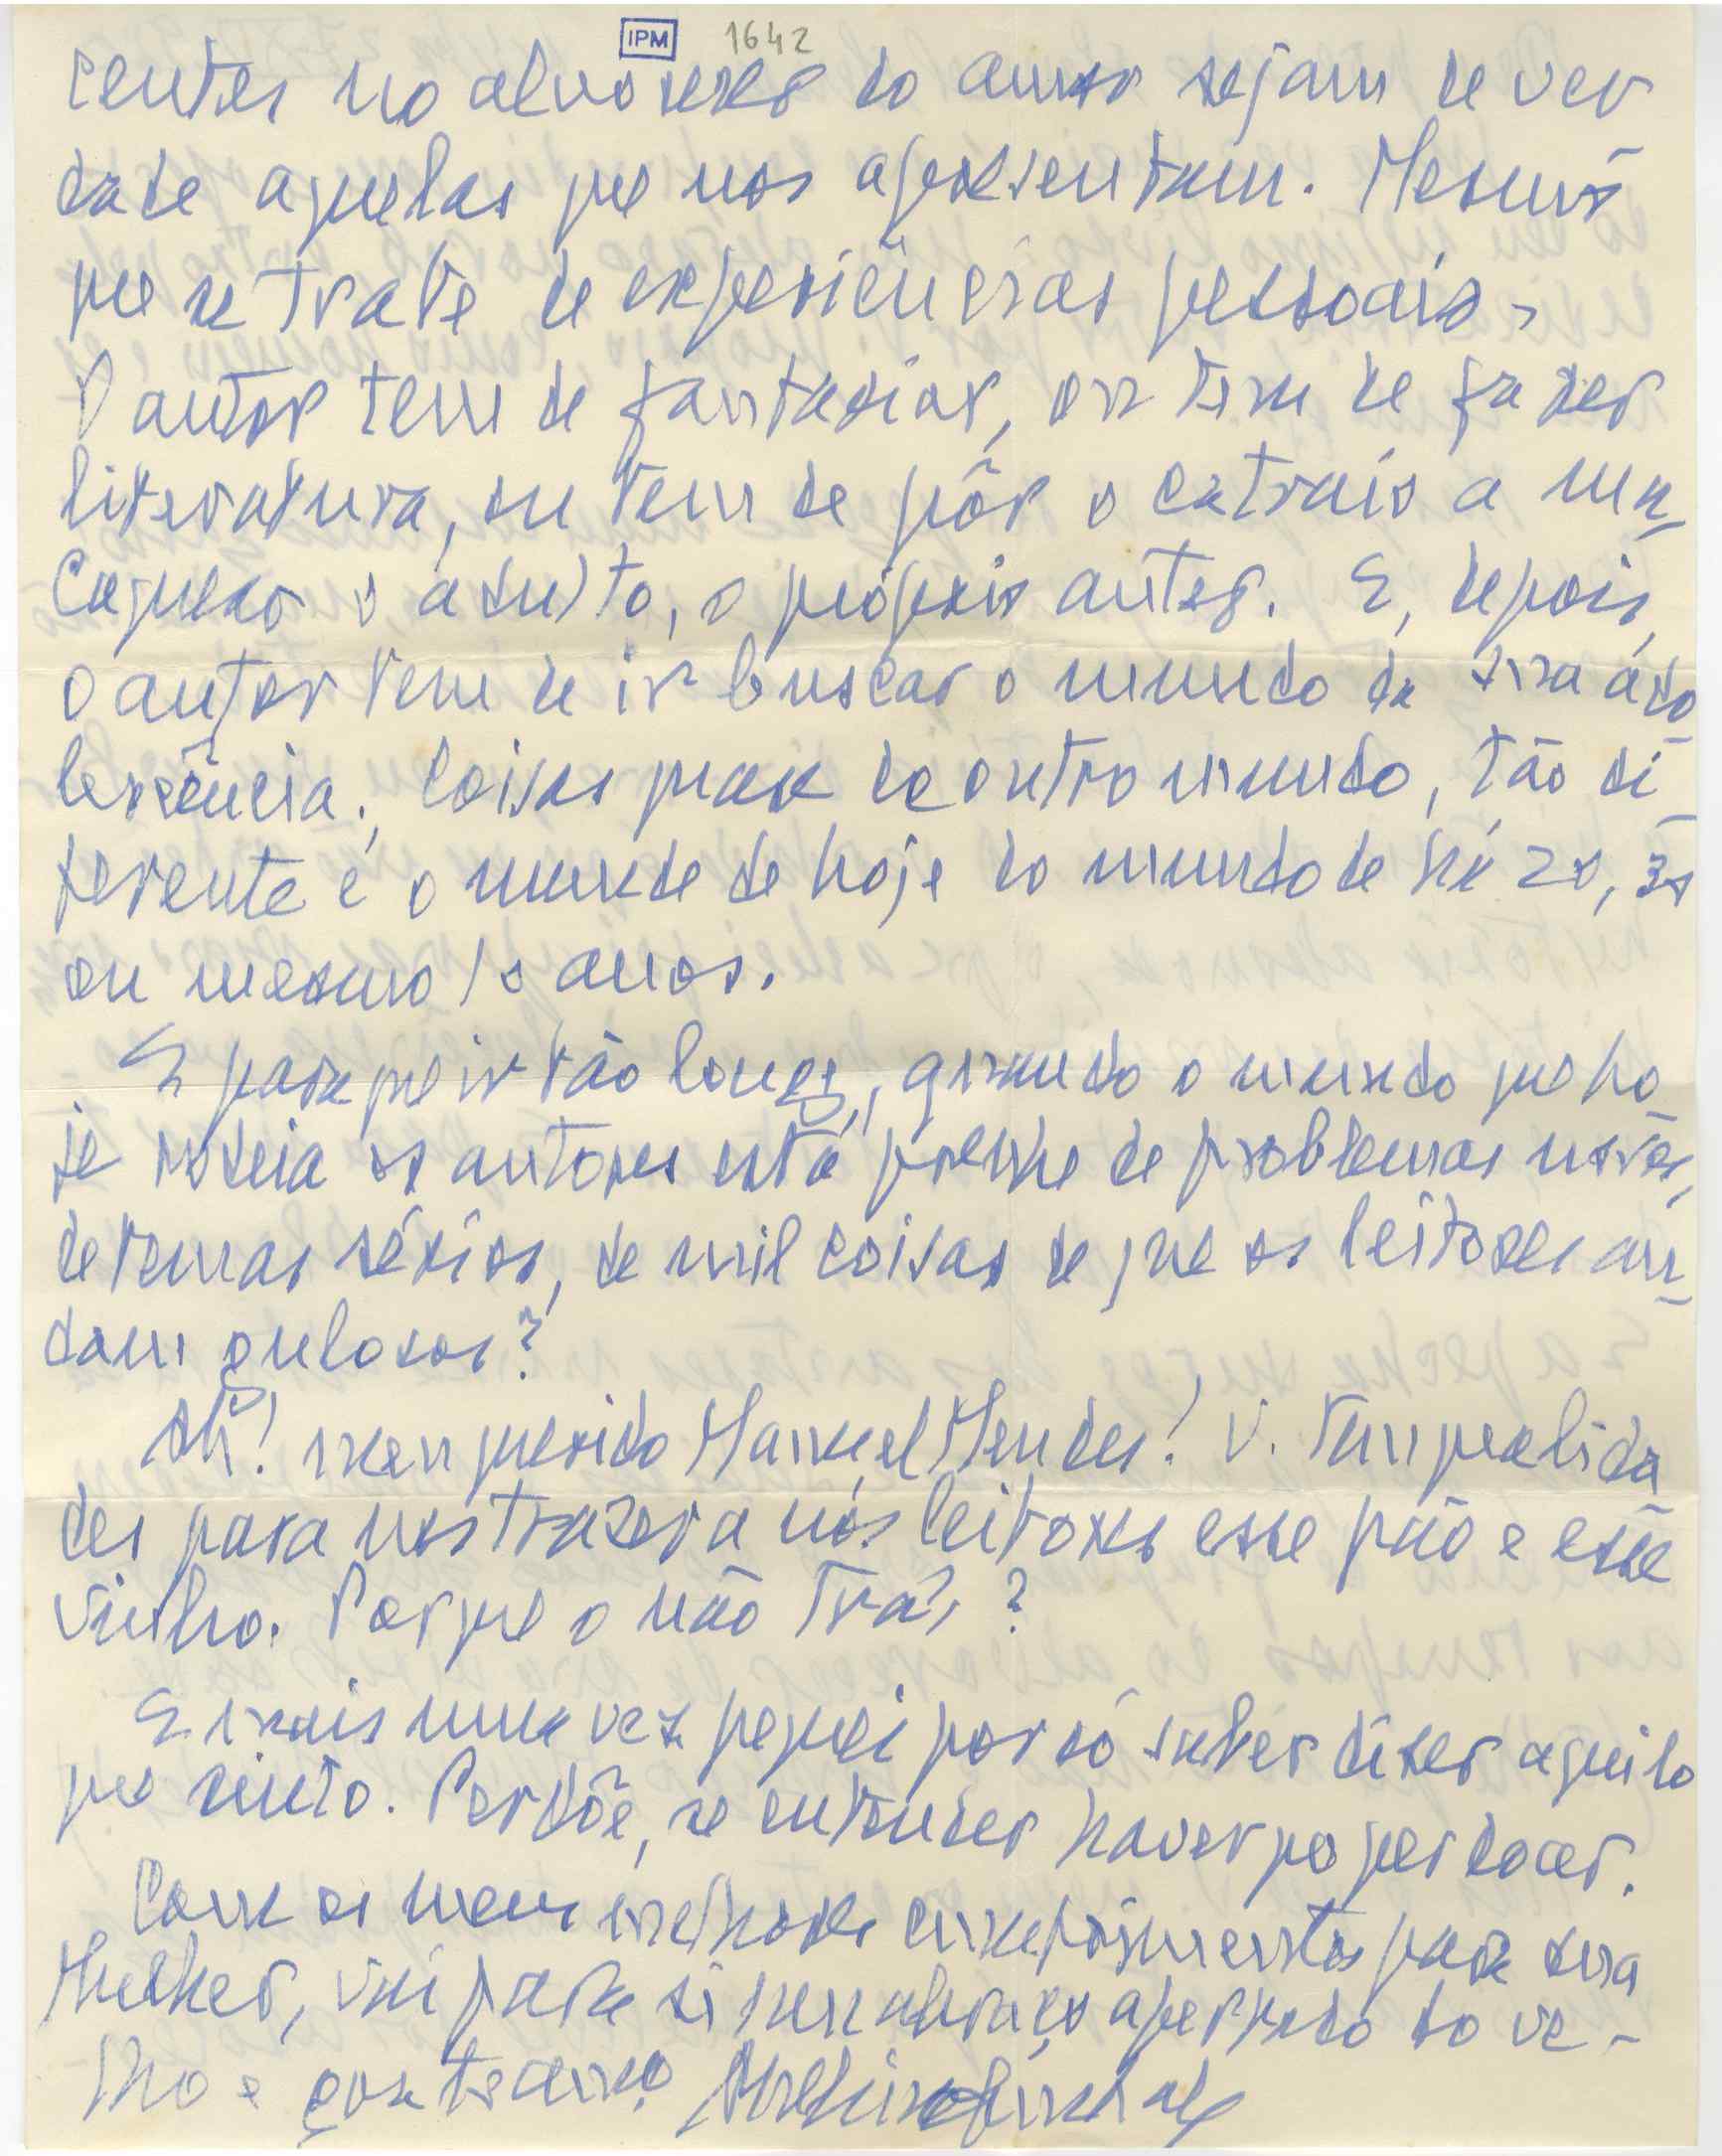 IPM 1642
centes no alvorecer do amor sejam de ver
dade aquelas que nos apresentam. Mesmo
que se trate de experiências pessoais,
O autor tem de fantasiar, ou tem de fazer
literatura, ou tem de pôr o catraio a ma_
caquear o adulto, o próprio autor. E, depois,
o autor tem de ir buscar o mundo da sua ado_
lescência. Coisas quase de outro mundo, tão di_
ferente é o mundo de hoje do mundo de há 20, 30
ou mesmo 10 anos.
E para que ir tão longe, quando o mundo que ho_
je rodeia os autores está prenhe de problemas novos,
de temas sérios, de mil coisas de que os leitores an_
dam gulosos?
Ah! meu querido Manuel Mendes! V. tem qualida_
des para nos trazer a nós leitores esse pão e esse
vinho. Porque o não tráz?
E mais uma vez pequei por só saber dizer aquilo
que sinto. Perdôe, se entender haver que perdoar.
Com os meus melhores cumprimentos para sua
Mulher, vai para si um abraço apertado do ve-
lho e grato amigo